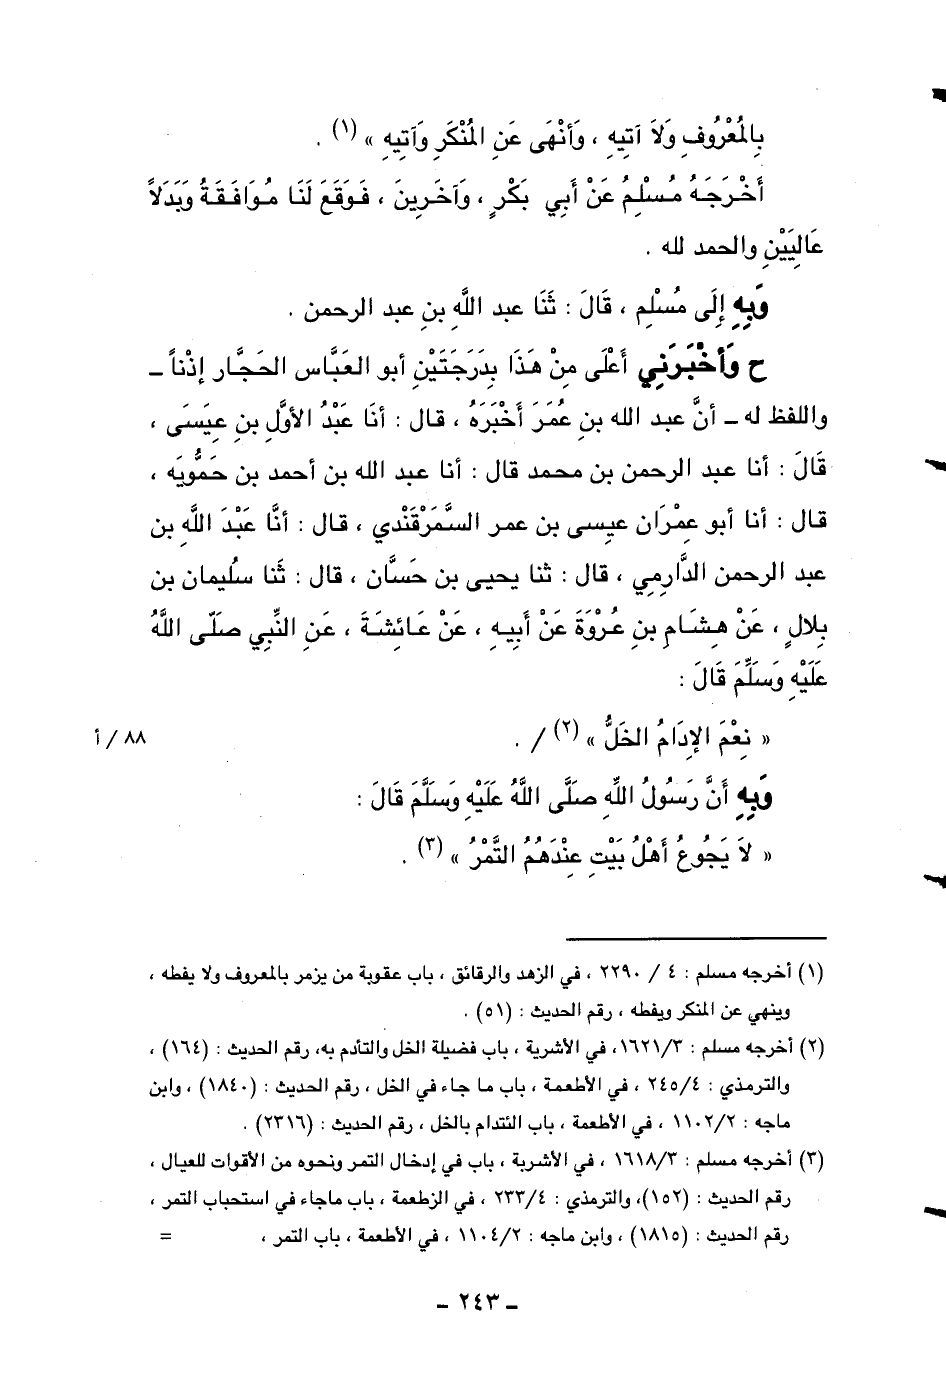 بِالمُعْرُوفِ وَلاَ آتِيهِ ، وَأنْهَى عَنِ المُنْكَرِ وَآتِيهِ » (١) .
أَخْرَجَهُ مُسْلِمُ عَنْ أَبِي بَكْرٍ ، وَآخَرِينَ ، فَوَقَعَ لَنَا مُوَافَقَةُ وَبَدَلاً
عَالِيَيْنِ والحمد لله .
وَبِهِ إلَى مُسْلِمٍ ، قَالَ : ثَنَا عبد اللَّهِ بنِ عبد الرحمن .
ح وَأَخْبَرَنِي أَعْلَى مِنْ هَذَا بِدَرَجَتَيْنِ أبو العَبَّاس الحَجَّار إذْناً ـ
واللفظ له ـ أنَّ عبد الله بنِ عُمَرَ أَخْبَرَهُ ، قال : أنَا عَبْدُ الأوَّلِ بنِ عِيَسَى ،
قَالَ : أنا عبد الرحمن بن محمد قال : أنا عبد الله بن أحمد بن حَمُّويَه ،
قال : أنا أبو عِمْرَان عيسى بن عمر السَّمَرْقَنْدي ، قال : أنَّا عَبْدَ اللَّهِ بن
عبد الرحمن الدَّارِمِي ، قال : ثنا يحيى بن حَسَّان ، قال : ثَنا سلُيمان بن
بِلالٍ ، عَنْ هِشَامِ بنِ عُرْوَةَ عَنْ أَبِيهِ ، عَنْ عَائِشَةَ ، عَنِ النِّبِي صلَّى اللَّهُ
عَلَيْهِ وَسَلِّمَ قَالَ :
« نِعْمَ الإِدَامُ الخَلُّ » (٢) / .
٨٨ / أ
وَبِهِ أَنَّ رَسُولُ اللِّهِ صلَّى اللَّهُ عَلَيْهِ وَسَلَّمَ قَالَ :
« لاَ يَجُوعُ أَهْلُ بَيْتِ عِنْدَهُمُ التَّمْرُ » (٣) .
(١) أخرجه مسلم : ٤ / ٢٢٩٠ ، في الزهد والرقائق ، باب عقوبة من يزمر بالمعروف ولا يفطه ،
وينهي عن المنكر ويفطه ، رقم الحديث : (٥١) .
(٢) أخرجه مسلم : ١٦٢١/٣، في الأشرية ، باب فضيلة الخل والتأدم به، رقم الحديث : (١٦٤) ،
والترمذي : ٢٤٥/٤ ، في الأطعمة ، باب ما جاء في الخل ، رقم الحديث : (١٨٤٠) ، وابن
ماجه : ١١٠٢/٢ ، في الأطعمة ، باب الئتدام بالخل ، رقم الحديث : (٢٣١٦) .
(٣) أخرجه مسلم : ١٦١٨/٣ ، في الأشربة ، باب في إدخال التمر ونحوه من الأقوات للعيال ،
رقم الحديث : (١٥٢)، والترمذي : ٢٣٣/٤ ، في الزطعمة ، باب ماجاء في استحباب التمر ،
رقم الحديث : (١٨١٥) ، وابن ماجه : ١١٠٤/٢ ، في الأطعمة ، باب التمر ، =
ـ ٢٤٣ ـ